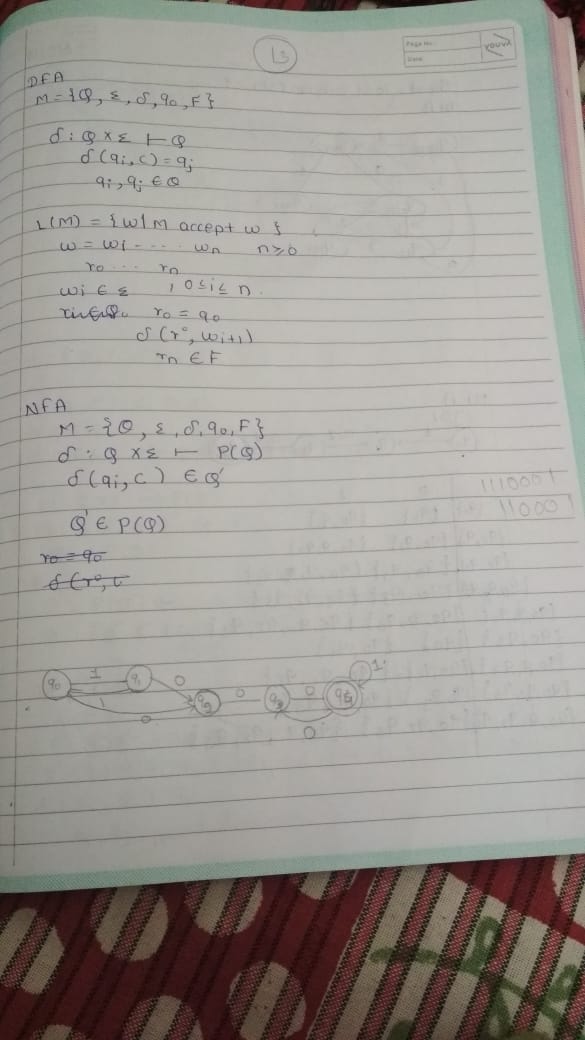 13
Page No.
Date
YOUVA
DFA
M = {Q, Σ, δ, q0, F}
δ : Q × Σ ⊢ Q
δ(qi, c) = qj
qi, qj ∈ Q
L(M) = {w | M accept w }
w = w1 - - - - wn n ≥ 0
r0 ... rn
wi ∈ Σ , 0 ≤ i ≤ n.
r0 = q0
δ(ri, wi+1)
rn ∈ F
NFA
M = {Q, Σ, δ, q0, F}
δ : Q × Σ ⊢ P(Q)
δ(qi, c) ∈ Q'
1110001
11000
Q' ∈ P(Q)
r0 = q0
q0 1 q1 0 0 0 1
1 0 0